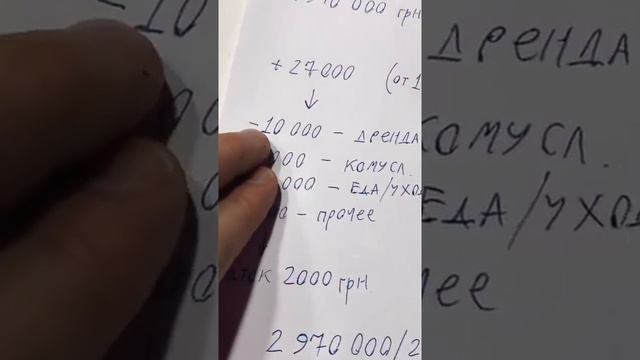 000 грн
+27000 (от 1
↓
-10 000 - АРЕНДА
000 - КОМУСЛ.
000 - ЕДА/УХОД
- ПРОЧЕЕ
ток 2000 грн
2 970 000/2